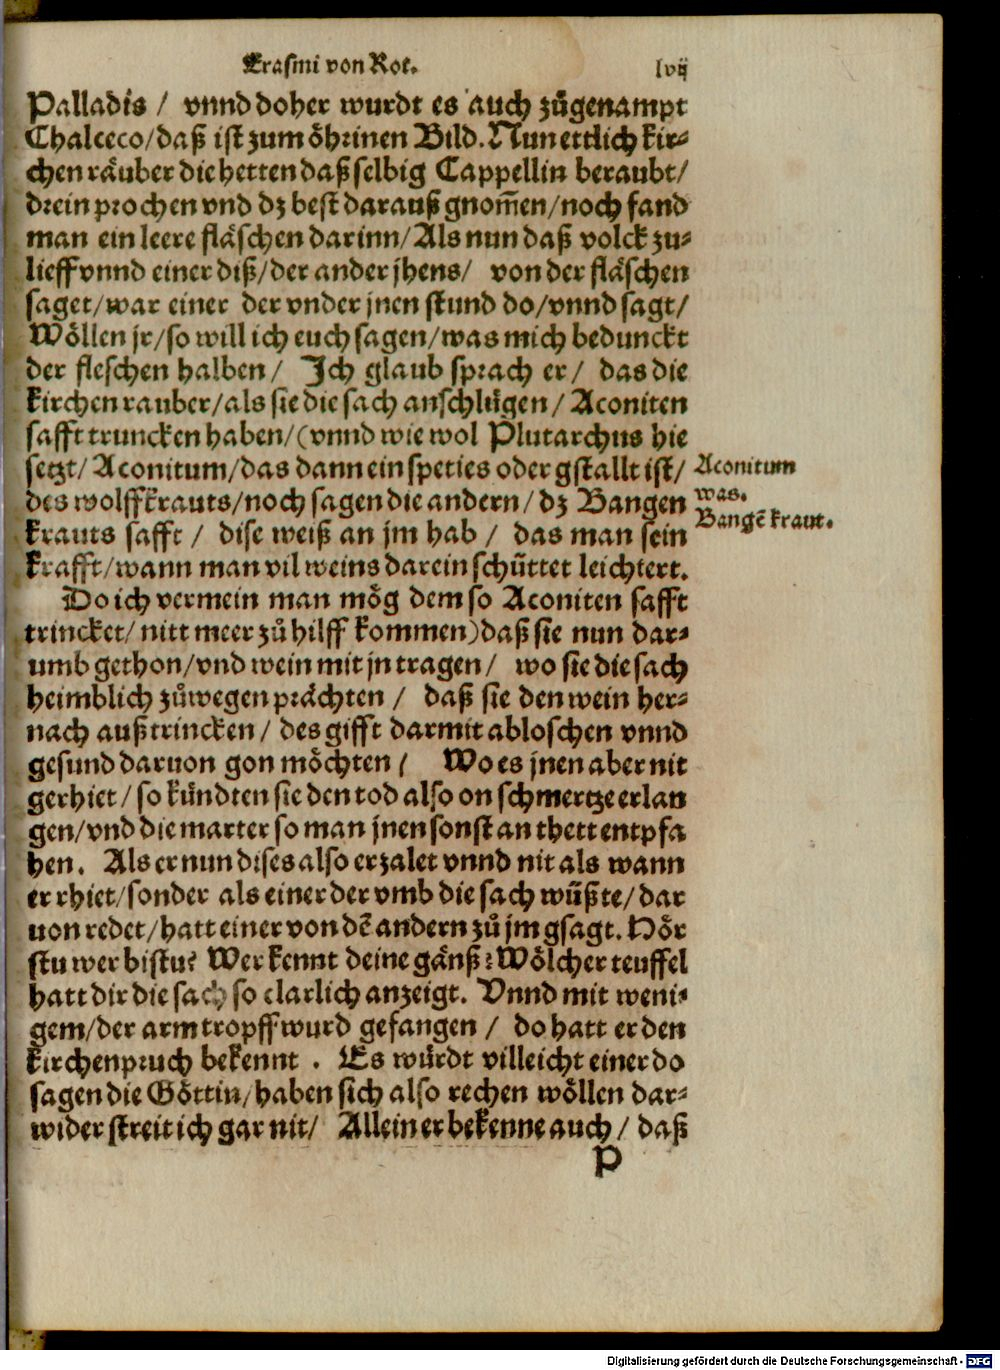 Erasmi von Rot. lvij
Palladis / vnnd doher wurdt es auch zůgenampt
Chalceco/daß ist zum öhrinen Bild. Nun ettlich kir⸗
chen räuber die hetten daß selbig Cappellin beraubt/
drein prochen vnd dz best darauß gnom̃en/noch fand
man ein leere fläschen darinn/Als nun daß volck zu⸗
lieff vnnd einer diß/der ander jhens/ von der fläschen
saget/war einer der vnder jnen stund do/vnnd sagt/
Wöllen jr/so will ich euch sagen/was mich bedunckt
der fleschen halben/ Ich glaub sprach er/ das die
kirchen rauber/als sie die sach anschlůgen/ Aconiten
safft truncken haben/(vnnd wie wol Plutarchus hie
setzt/Aconitum/das dann ein speties oder gstallt ist/
des wolffkrauts/noch sagen die andern/dz Bangen
krauts safft / dise weiß an jm hab / das man sein
krafft/wann man vil weins darein schüttet leichtert.
Do ich vermein man mög dem so Aconiten safft
trincket/nitt meer zů hilff kommen)daß sie nun dar⸗
umb gethon/vnd wein mit jn tragen/ wo sie die sach
heimblich zůwegen prächten / daß sie den wein her⸗
nach außtrincken/des gifft darmit abloschen vnnd
gesund daruon gon möchten / Wo es jnen aber nit
gerhiet/so kündten sie den tod also on schmertze erlan
gen/vnd die marter so man jnen sonst an thett entpfa
hen. Als er nun dises also erzalet vnnd nit als wann
er rhiet/sonder als einer der vmb die sach wüßte/dar
uon redet/hatt einer von dẽ andern zů jm gsagt. Hör
stu wer bistu? Wer kennt deine gänß? Wölcher teuffel
hatt dir die sach so clarlich anzeigt. Vnnd mit weni⸗
gem/der arm tropff wurd gefangen / do hatt er den
kirchenpruch bekennt . Es würdt villeicht einer do
sagen die Göttin/haben sich also rechen wöllen dar⸗
wider streit ich gar nit/ Allein er bekenne auch / daß
P
Aconitum
was.
Bangẽ kraut.
Digitalisierung gefördert durch die Deutsche Forschungsgemeinschaft - DFG